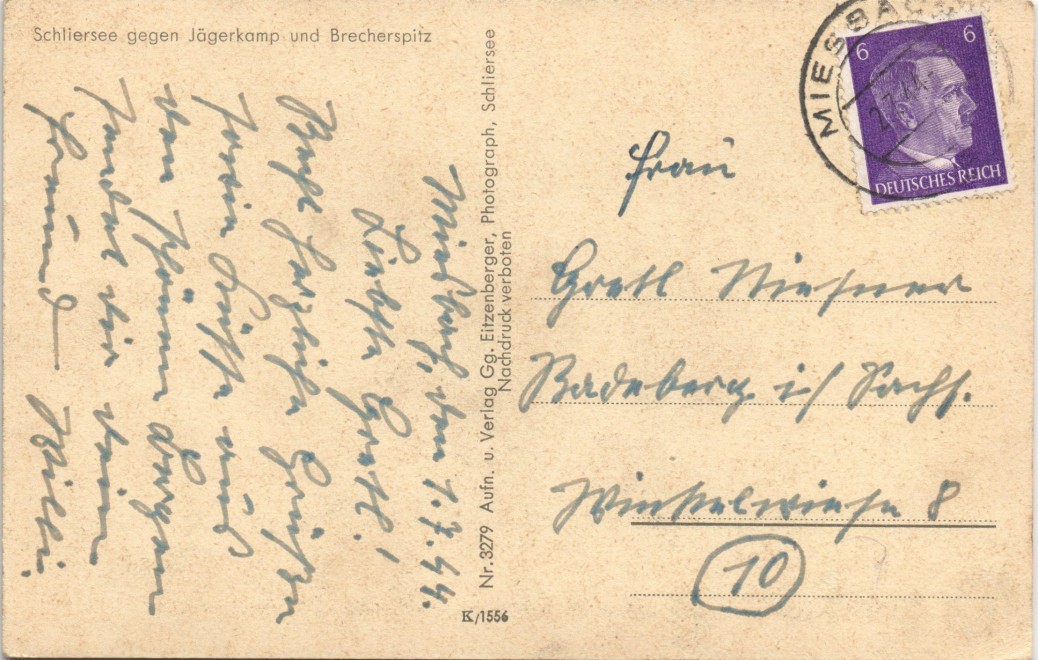 Schliersee gegen Jägerkamp und Brecherspitz
Miesbach, den 1.7.44.
Liebste Gretl!
Recht herzliche Grüße
sowie Küsse und
von schönen Bergen
sendet dir dein
Willi.
Nr. 3279 Aufn. u. Verlag Gg. Eitzenberger, Photograph, Schliersee
Nachdruck verboten
K/1556
MIESBACH
6 6
DEUTSCHES REICH
Frau
Gretl Wiesner
Radeberg i/ Sachs.
Winkelwiese 8
10